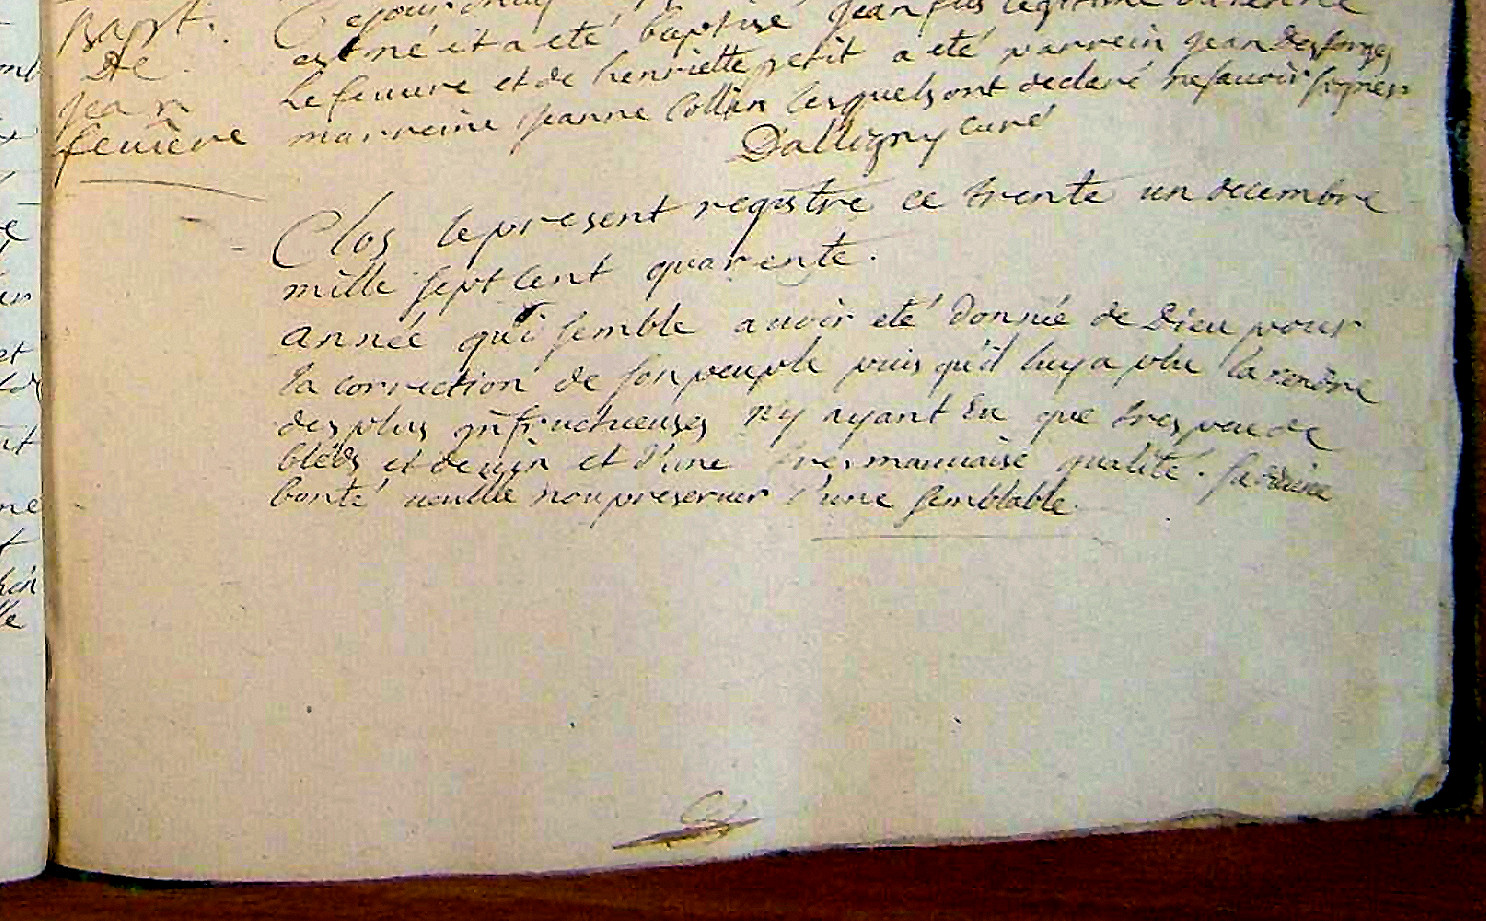 Bapt.
De
jean
feuvere
est né et a eté baptisé jean fils legitime
Lefeuvre et de henriette petit a eté parrein jean Desforges
marreine jeanne Collin lesquels ont declaré ne savoir signer
D'alligny curé
Clos le present registre ce trente un decembre
mille sept cent quarente.
année qui semble avoir eté donnée de Dieu pour
la correction de son peuple puis qu'il luy a plu la rendre
des plus infructueuses n'y ayant eu que tres peu de
bleds et de vin et d'une tres mauvaise qualité. sa divine
bonté veuille nou preserver d'une semblable